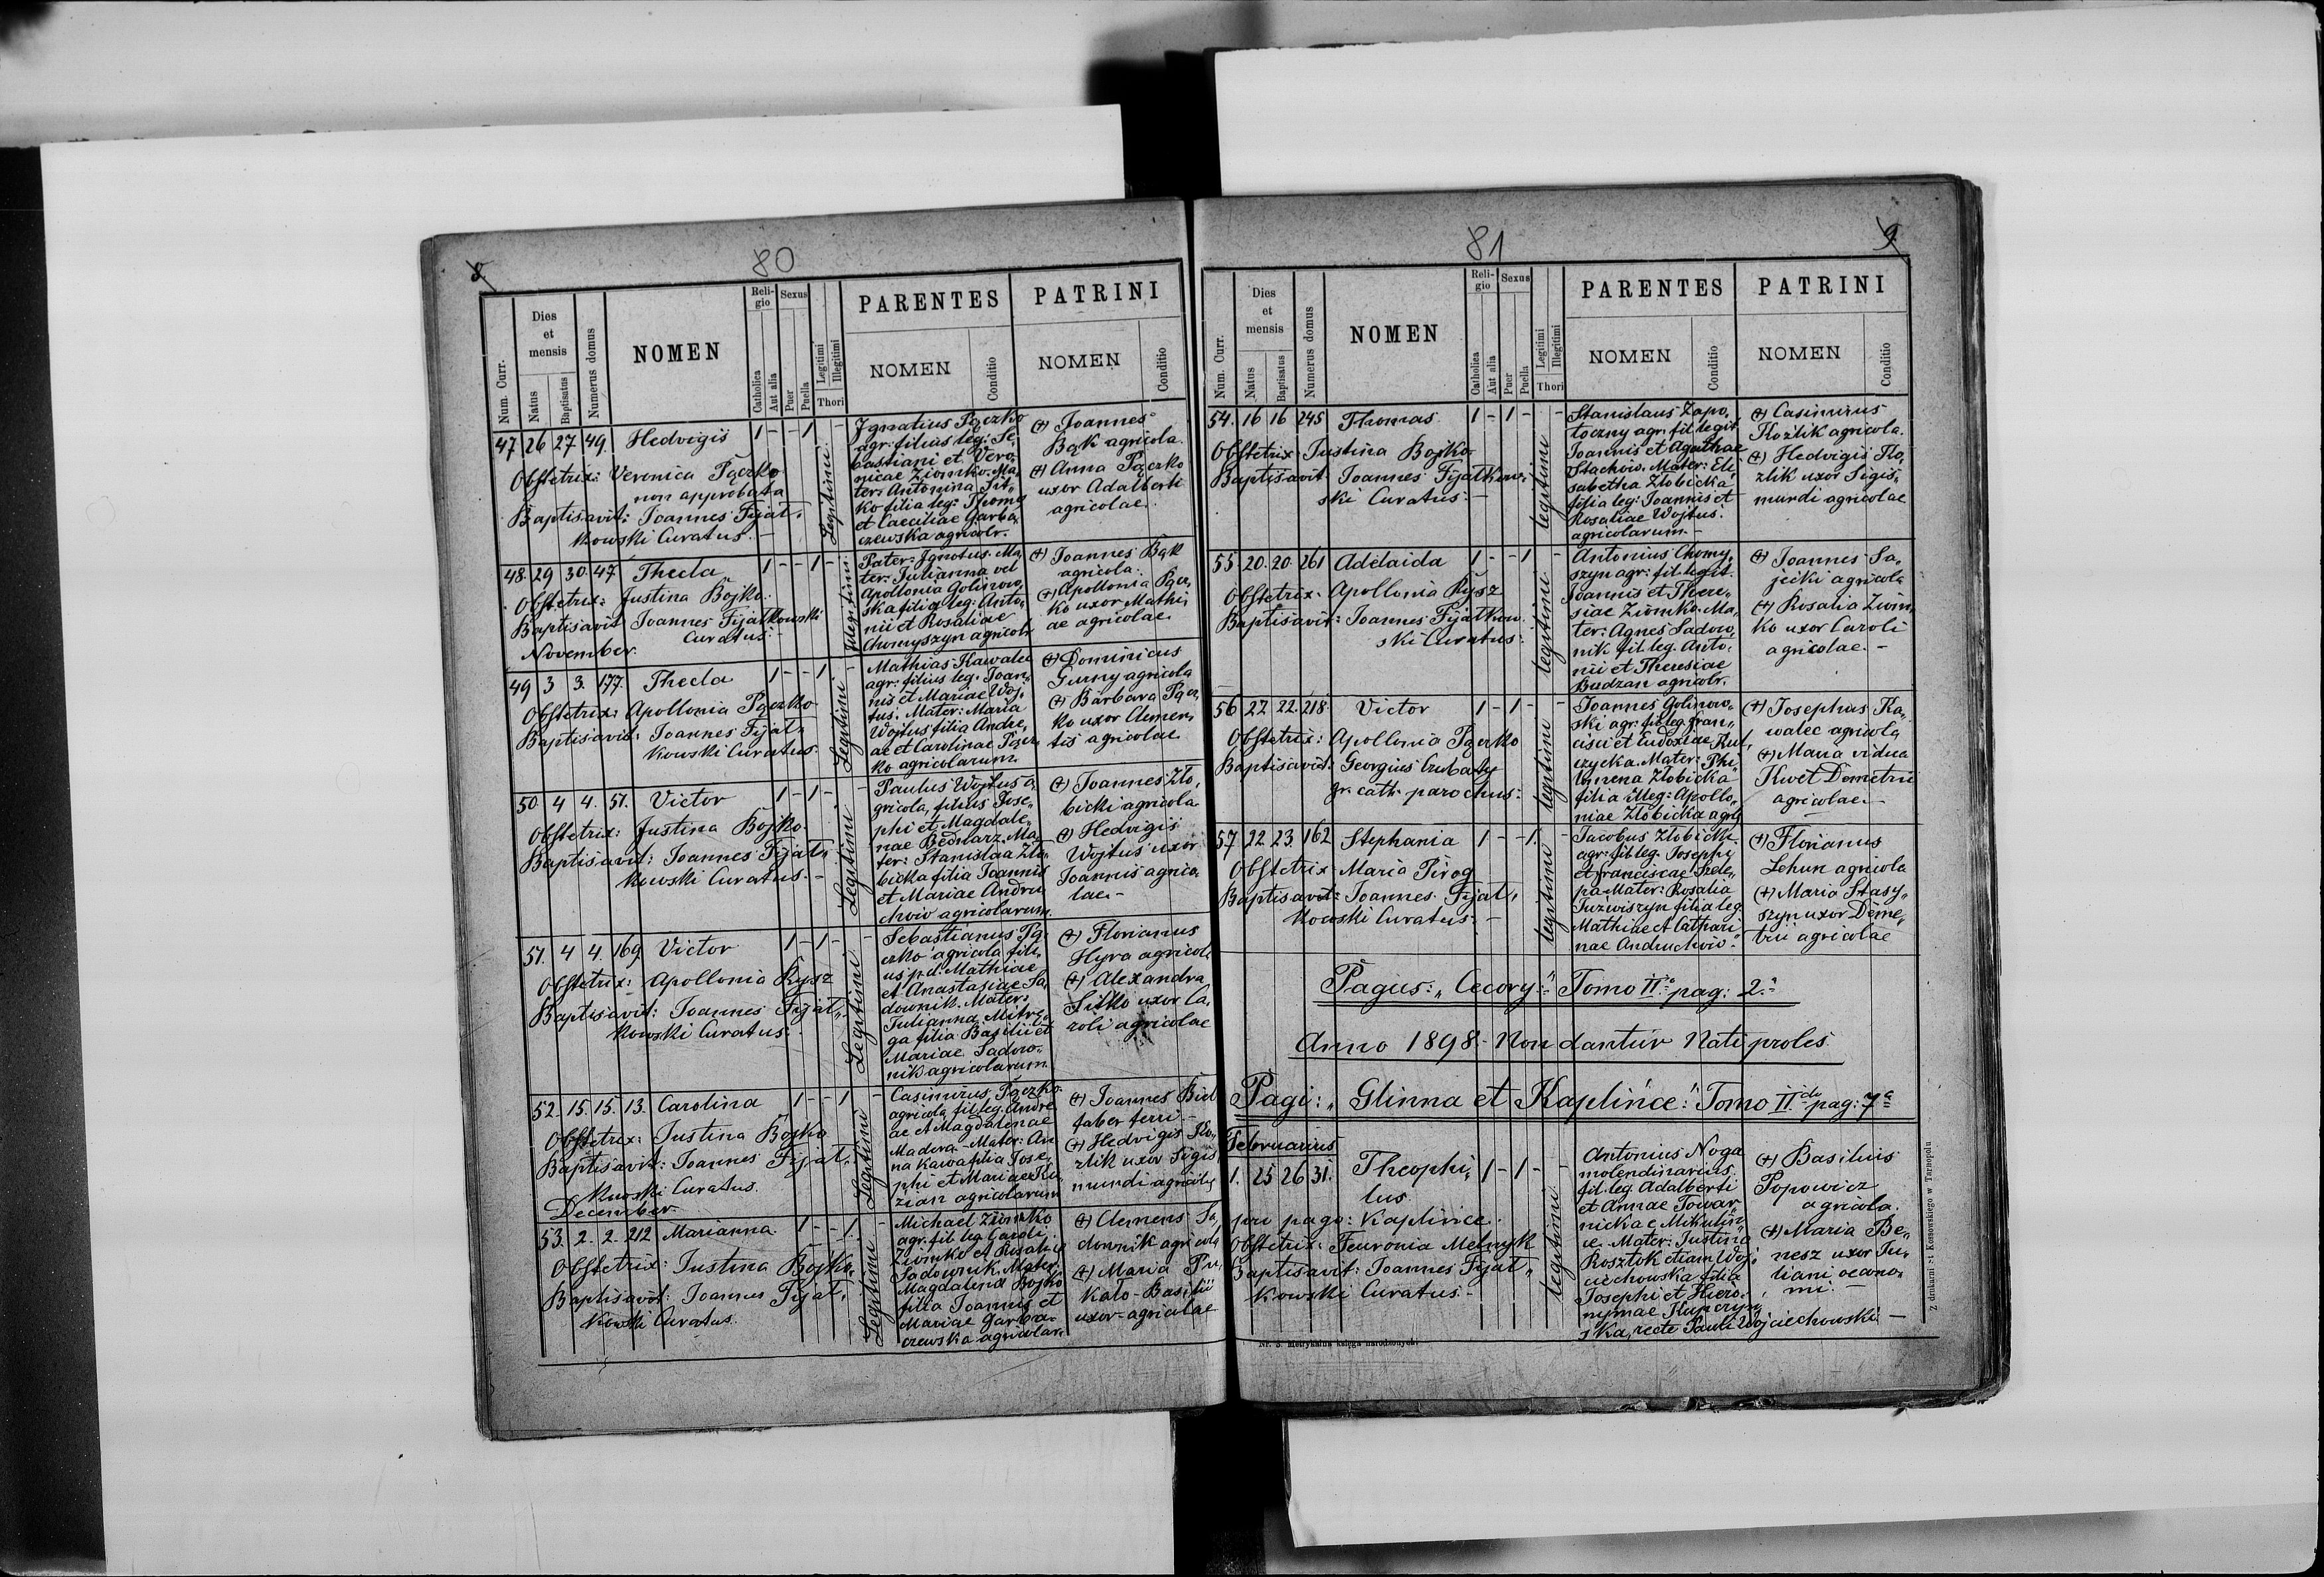 8
80
Num. Curr.
Dies et mensis
Natus
Baptisatus
Numerus domus
NOMEN
Reli-
gio
Catholica
Aut alia
Sexus
Puer
Puella
Legitimi
Illegitimi
Thori
PARENTES
NOMEN
Conditio
PATRINI
NOMEN
Conditio
47 26 27 49. Hedvigis 1 - - 1 -
Obstetrix: Veronica Pączko
non approbata
Baptisavit: Joannes Fijał„
kowski Curatus. -
Legitimi
Ignatius Pączko
agr: filius leg: Se„
bastiani et Vero„
nicae Ziomko. Ma„
ter: Antonina Sit„
ko filia leg: Thomae
et Caeciliae Garba„
czewska agricolr.
(+) Joannes
Bąk agricola.
(+) Anna Pączko
uxor Adalberti
agricolae.
48. 29 30. 47 Thecla 1 - - 1 -
Obstetrix: Justina Bojko.
Baptisavit Joannes Fijałkowski
Curatus. -
Illegitimi
Pater: Ignotus. Ma„
ter: Julianna vel
Apollonia Golinow„
ska filia leg: Anto„
nii et Rosaliae
Chomyszyn agricolr.
(+) Joannes Bąk
agricola.
(+) Apollonia Pącz„
ko uxor Mathi„
ae agricolae.
November.
49 3 3. 177. Thecla 1 - - 1 -
Obstetrix: Apollonia Pączko
Baptisavit: Joannes Fijał„
kowski Curatus.
Legitimi
Mathias Kawalec
agr: filius leg. Joan„
nis et Mariae Woj„
tuś. Mater: Maria
Wojtuś filia Andre„
ae et Carolinae Pącz„
ko agricolarum.
(+) Dominicus
Gurny agricola
(+) Barbara Pącz„
ko uxor Clemen„
tis agricolae
50. 4 4. 51. Victor 1 - 1 - -
Obstetrix: Justina Bojko.
Baptisavit: Joannes Fijał„
kowski Curatus. -
Legitimi
Paulus Wojtuś a„
gricola, filius Jose„
phi et Magdale„
nae Bednarz. Ma„
ter: Stanislaa Zło„
bicka filia Joannis
et Mariae Andru„
chow agricolarum.
(+) Joannes Zło„
bicki agricola
(+) Hedvigis
Wojtuś uxor
Joannis agrico„
lae. -
51. 4 4. 169. Victor 1 - 1 - -
Obstetrix: Apollonia Rysz
Baptisavit: Joannes Fijał„
kowski Curatus: -
Legitimi
Sebastianus Pą„
czko agricola fili„
us p.d. Mathiae
et Anastasiae Sa„
downik. Mater:
Julianna Mitrę„
ga filia Basilii et
Mariae Sadow„
nik agricolarum
(+) Florianus
Hyra agricola
(+) Alexandra
Sitko uxor Ca„
roli agricolae
52. 15. 15. 13. Carolina 1 - - 1 -
Obstetrix: Justina Bojko
Baptisavit: Joannes Fijał„
kowski Curatus.
Legitimi
Casimirus Pączko
agricola fil. leg. Andre
ae et Magdalenae
Madera - Mater: An
na Kawa filia Jose„
phi et Mariae
zian agricolarum
(+) Joannes Bid
faber ferri -
(+) Hedvigis Ko„
zlik uxor Sigis„
mundi agricolae
December.
53. 2. 2. 212 Marianna 1 - - 1. -
Obstetrix: Justina Bojko.
Baptisavit: Joannes Fijał„
kowski Curatus.
Legitimi
Michael Ziomko
agr. fil. leg. Caroli
Ziomko et Rosaliae
Sadownik. Mater:
Magdalena Bojko
filia Joannis et
Mariae Garba„
czewska agricolar.
(+) Clemens Sa„
downik agricola
(+) Maria Pu„
kało - Basilii
uxor - agricolae
81
9
Num. Curr.
Dies
et
mensis
Natus
Baptisatus
Numerus domus
NOMEN
Reli-
gio
Catholica
Aut alia
Sexus
Puer
Puella
Legitimi
Illegitimi
Thori
PARENTES
NOMEN
Conditio
PATRINI
NOMEN
Conditio
54. 16 16 245 Thomas. 1 - 1 - -
Obstetrix: Justina Bojko
Baptisavit Joannes Fijałkow„
ski Curatus: -
legitimi
Stanislaus Zapo„
toczny agr. fil. legit.
Joannis et Agathae
Stachów. Mater: Eli„
sabetha Złobicka
filia leg: Joannis et
Rosaliae Wojtuś.
agricolarum. -
(+) Casimirus
Kozlik agricola.
(+) Hedvigis Ko„
zlik uxor Sigis„
mundi agricolae
55 20. 20. 261 Adelaida 1 - - 1 -
Obstetrix. Apollonia Rysz
Baptisavit: Joannes Fijałkow„
ski Curatus:
legitimi
Antonius Chomy„
szyn agr: fil. legit.
Joannis et There„
siae Ziomko. Ma„
ter: Agnes Sadow„
nik fil. leg. Anto„
nii et Theresiae
Budzan agricolr.
(+) Joannes Sa„
jecki agricola
(+) Rosalia Ziom„
ko uxor Caroli
agricolae. -
56 27. 22. 218. Victor 1 - 1 - -
Obstetrix: Apollonia Pączko
Baptisavit: Georgius Czubaty
gr. cath. parochus:
legitimi
Joannes Golinow„
ski agr: fil. leg. Fran„
cisci et Eudoxiae Kul„
czycka. Mater: Phi„
lomena Złobicka
filia illeg: Apollo„
niae Złobicka agr.
(+) Josephus Ka„
walec agricola
(+) Maria vidua
Kwet Demetrii
agricolae. -
57 22. 23. 162 Stephania 1 - - 1. -
Obstetrix: Maria Pirog
Baptisavit: Joannes Fijał„
kowski Curatus: -
legitimi
Jacobus Złobicki
agr: fil. leg. Josephi
et Franciscae Szele„
pa Mater: Rosalia
Juzwiszyn filia leg.
Mathiae et Cathari
nae Andruchow.
(+) Florianus
Lehun agricola
(+) Maria Stasy„
szyn uxor Deme„
trii agricolae
Pagus: „Cecory:" Tomo II° pag: 2.
Anno 1898. Non dantur Nati proles.
Pagi: „Glinna et Kaplińce:" Tomo II do pag: 7a
Februarius
1. 25 26 31. Theophi„ 1 - 1 - -
lus.
pro pago: Kaplińce.
Obstetrix: Feuronia Melnyk
Baptisavit: Joannes Fijał„
kowski Curatus. -
legitimi
Antonius Noga
molendinarius.
fil. leg. Adalberti
et Annae Towar„
nicka e Mikulin„
ce. Mater: Justina
Rosztok etiam Woj„
ciechowska filia
Josephi et Hiero„
nymae Kupczyń„
ska, recte Pauli Wojciechowski -
(+) Basilius
Popowicz
agricola.
(+) Maria Be„
nesz uxor Ju„
liani oecono„
mi. -
Z drukarni St. Kossowskiego w Tarnopolu
Nr. 3. Metrykalna księga narodzonych.